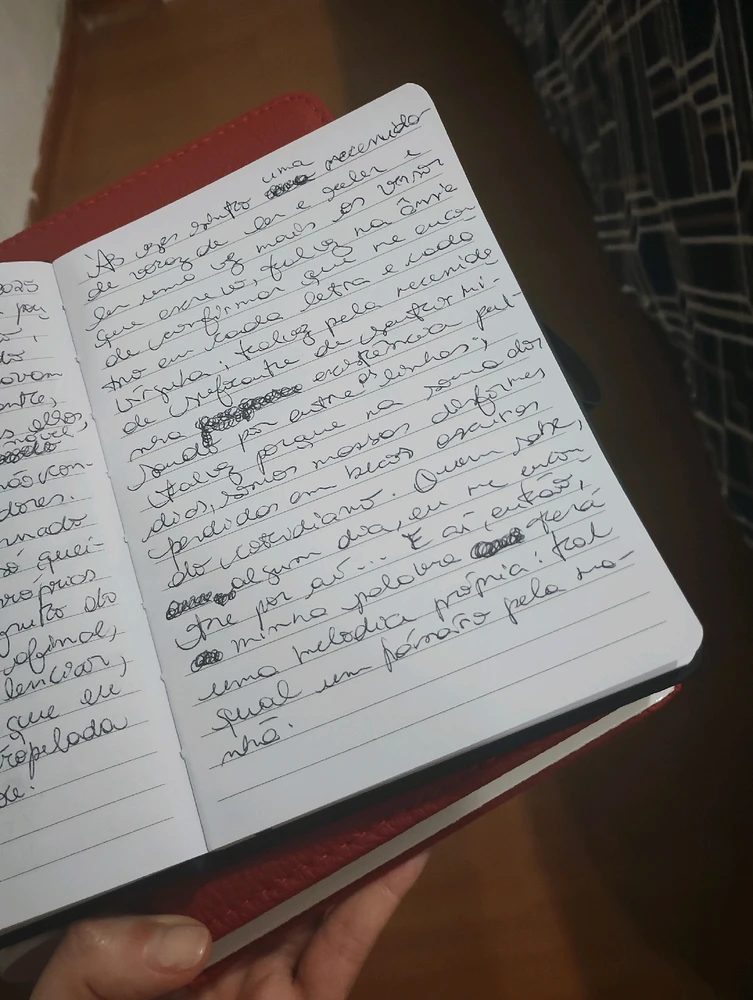 2025
por
ovom
ontre,
s elos,
não con-
dores.
rnado
só quei-
róprios
grito do
afinal,
lenciar,
que eu
ropelada
Às vezes sinto uma necessidade
de voraz de ler e reler e
ler uma vez mais os versos
que escrevo, talvez na ânsia
de confirmar que me encon
tro em cada letra e cada
vírgula; talvez pela necessida
de de que a existência mi-
nha existência pul-
sando por entre as linhas;
talvez porque na soma dos
dias, somos massas disformes
perdidas em becos escuros
do cotidiano. Quem sabe,
algum dia, eu me encon
tre por aí... E aí, então,
a minha palavra terá
uma melodia própria: tal
qual um pássaro pela ma-
nhã.